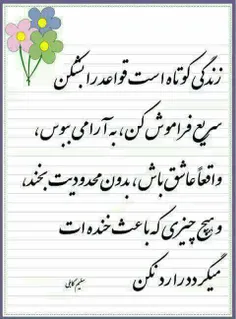 زندگی کوتاه است قواعد را بشکن
سریع فراموش کن، به آرامی ببوس،
واقعاً عاشق باش، بدون محدودیت بخند،
و هیچ چیزی که باعث خنده ات
میگردد را رد نکن